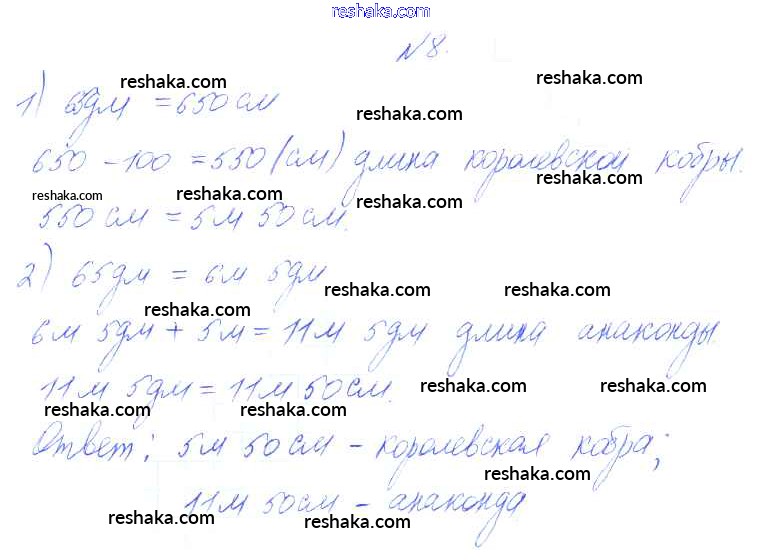 reshaka.com
№8.
reshaka.com reshaka.com
1) 65дм = 650 см
reshaka.com
650 - 100 = 550 (см) длина королевской кобры.
reshaka.com
reshaka.com reshaka.com reshaka.com
550 см = 5м 50 см.
2) 65дм = 6м 5дм
reshaka.com reshaka.com
reshaka.com
6м 5дм + 5м = 11м 5дм длина анаконды.
reshaka.com
11м 5дм = 11м 50см.
reshaka.com reshaka.com
reshaka.com reshaka.com
Ответ: 5м 50см - королевская кобра;
reshaka.com
11м 50см - анаконда
reshaka.com reshaka.com